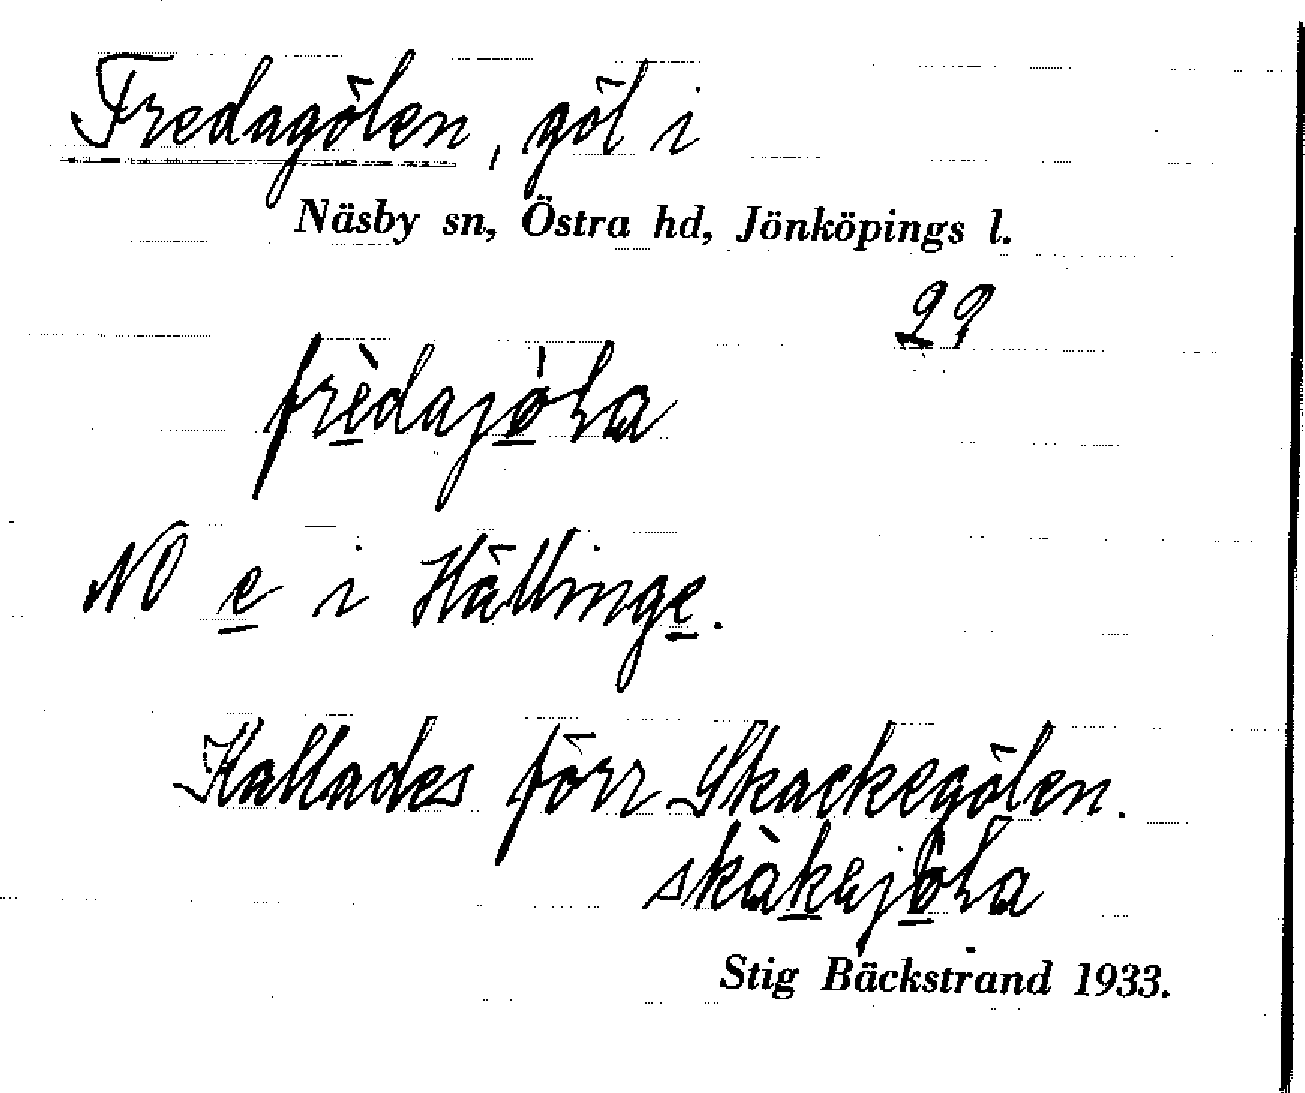 Fredagölen, göl i
Näsby sn, Östra hd, Jönköpings l.
29
frèdajöla
NO e i Hällinge.
Kallades förr Skackegölen.
skàkejöla
Stig Bäckstrand 1933.